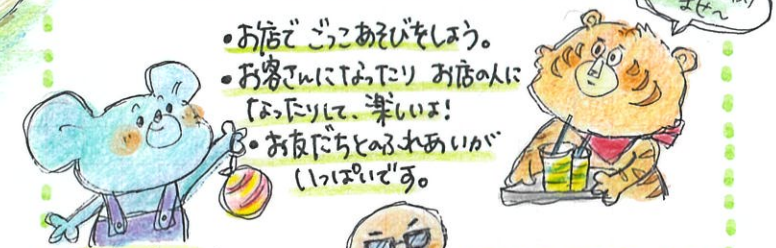 ・お店で ごっこあそびをしよう。
・お客さんになったり お店の人に
なったりして、楽しいよ!
・お友だちとのふれあいが
いっぱいです。
ませ〜